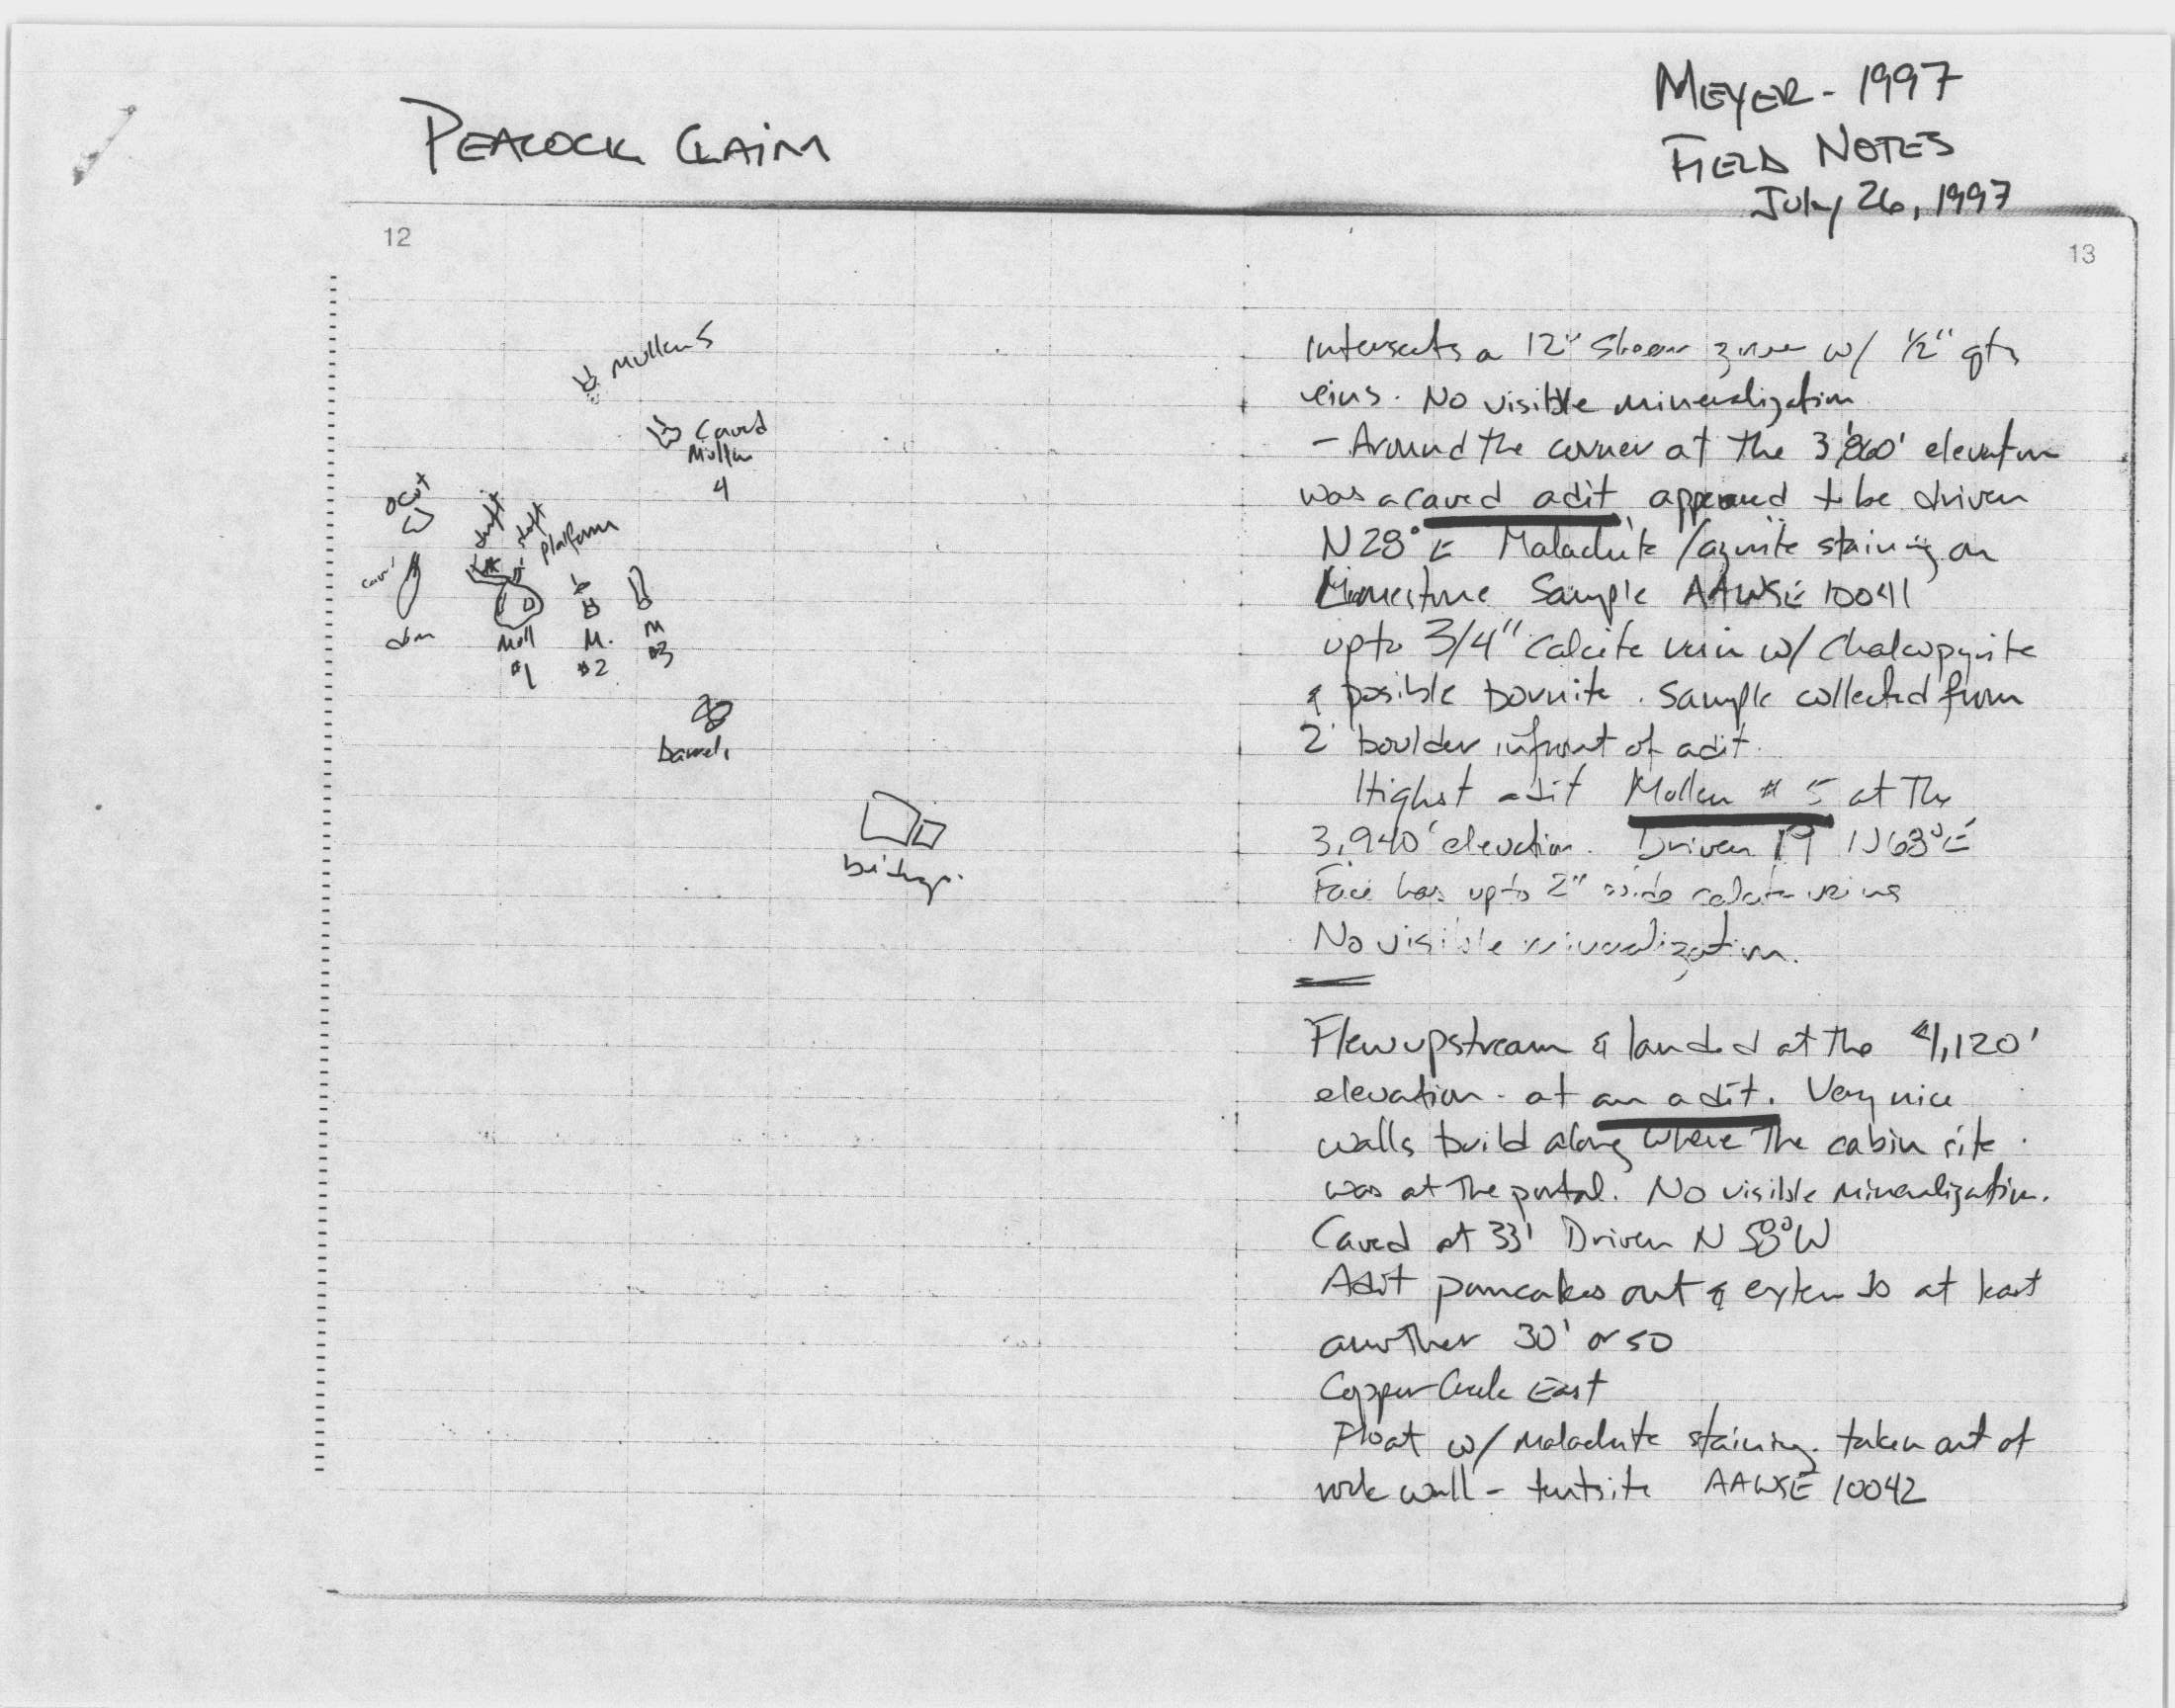 PEACOCK CLAIM
MEYER - 1997
FIELD NOTES
July 26, 1997
12
13
Mullen 5
Caved
Mullen
4
ocut
shaft
platform
Mull
#1
M.
#2
M
#3
barrels
Intersects a 12" Shear zone w/ 1/2" qtz
veins. No visible mineralization
- Around the corner at the 3,860' elevation
was a caved adit appeared to be driven
N 28° E Malachite/azurite staining on
Limestone Sample AAWSE 10041
upto 3/4" calcite vein w/ Chalcopyrite
& posible bornite. Sample collected from
2' boulder infront of adit.
Highest adit Mullen #5 at The
3,940' elevation. Driven 19' N63°E
Face has upto 2" wide calcite veins
No visible mineralization.
Flew upstream & landed at the 4,120'
elevation - at an adit. Very nice
walls build along where The cabin site
was at The portal. No visible mineralization.
Caved at 33' Driven N 58° W
Adit pancakes out & extends at least
another 30' or 50
Copper Creek East
Float w/ Malachite staining. taken out of
rock wall - tentsite AAWSE 10042